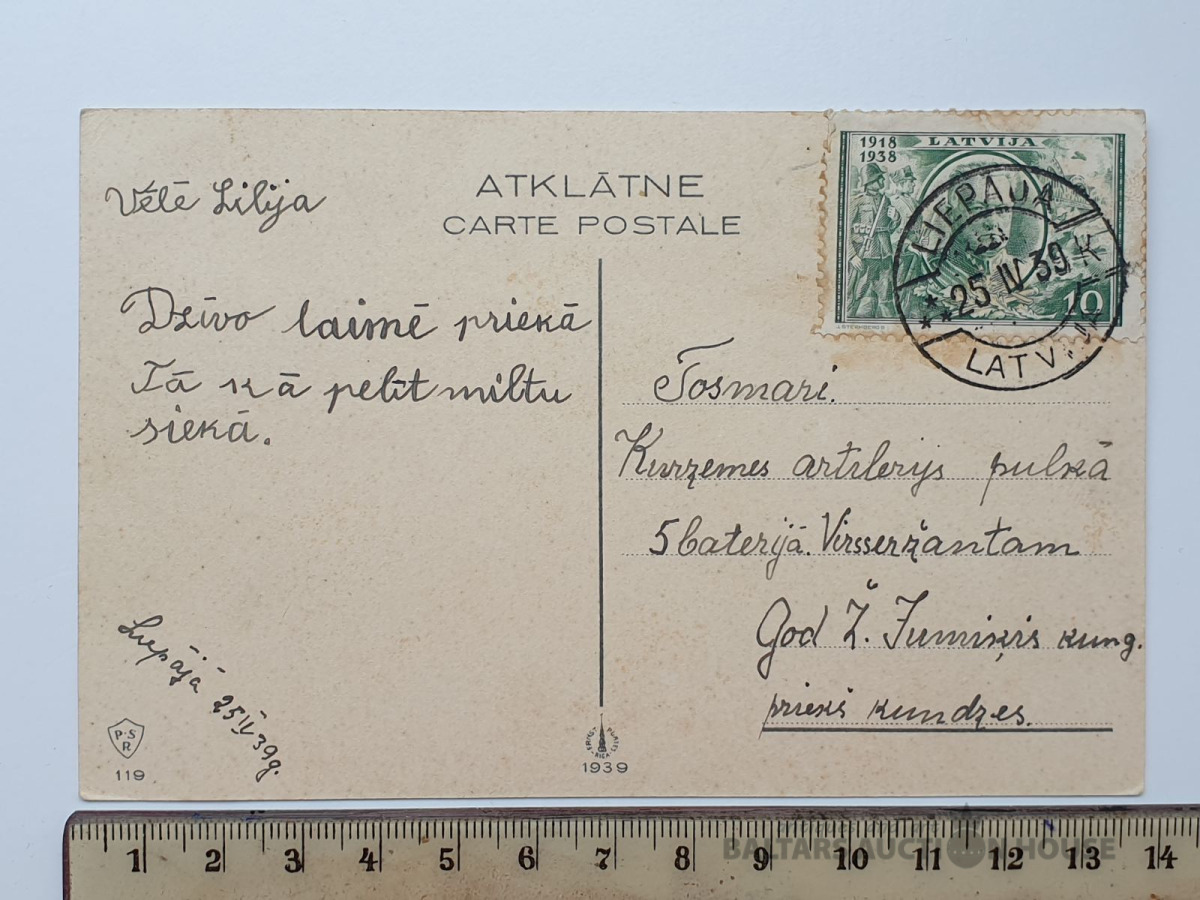 ATKLĀTNE
CARTE POSTALE
Vēlē Lilija
Dzīvo laimē priekā
Tā kā pelīt miltu
siekā.
Liepājā 25 IV 39g.
P.S
R
119
1939
1918
1938
LATVIJA
10
LIEPĀJA
**25 IV 39 K
Tosmarī.
Kurzemes artilerijs pulkā
5 baterijā. Virsseržantam
God Ž. Jumiķis kung.
priekš kundzes.
1 2 3 4 5 6 7 8 9 10 11 12 13 14
BALTARS AUCTION HOUSE